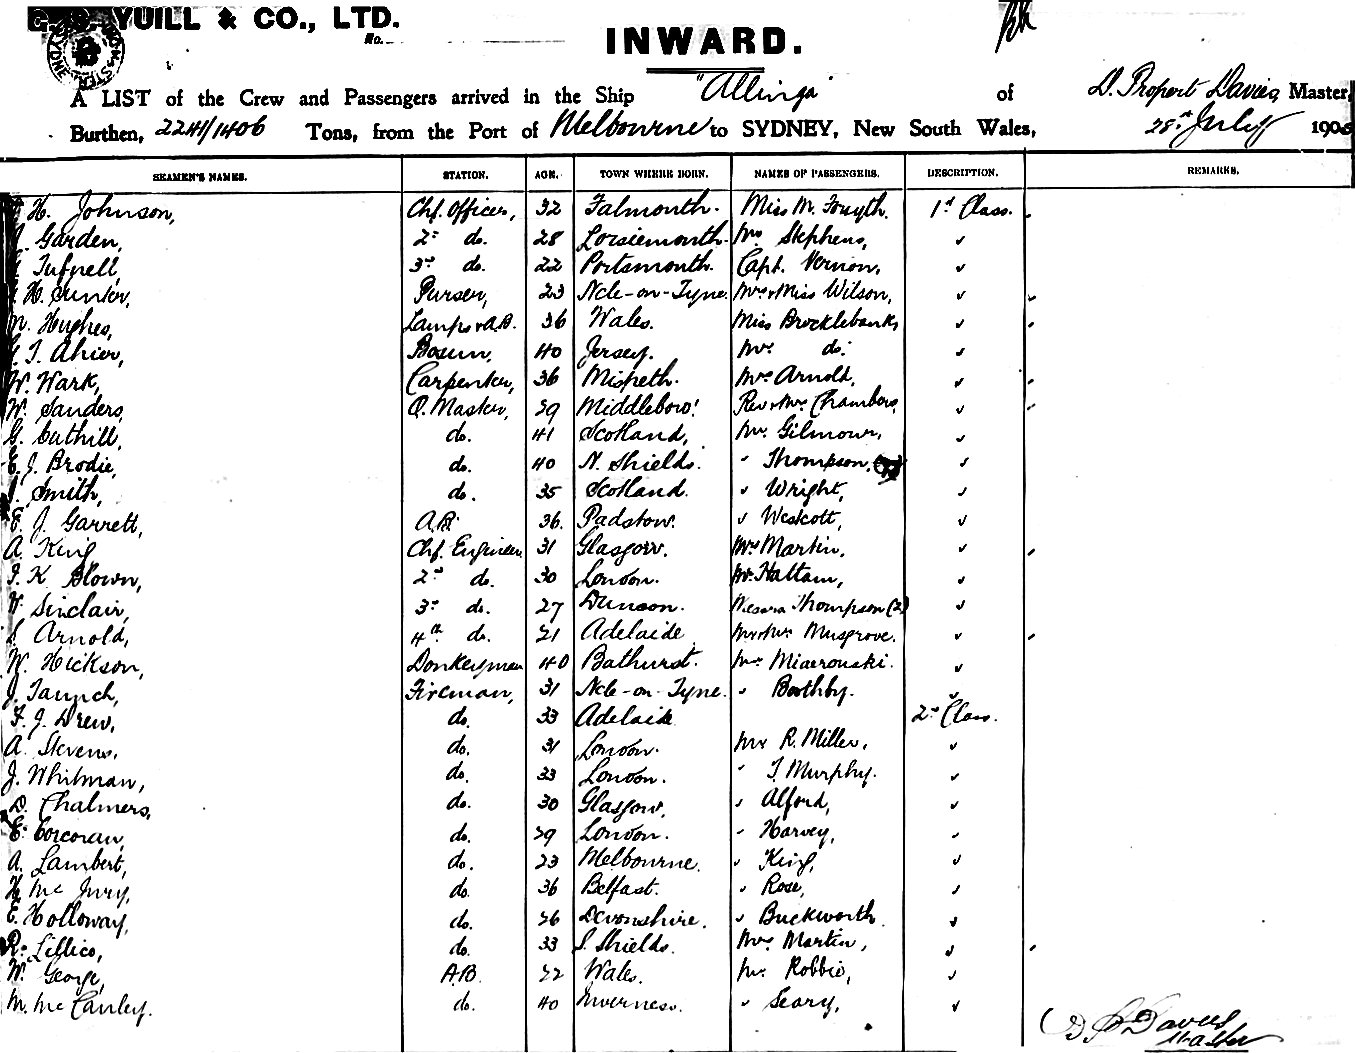 YUILL & CO., LTD.
No.
INWARD.
A LIST of the Crew and Passengers arrived in the Ship "Allinga" of D. Propert Davies Master,
Burthen, 2241/1406 Tons, from the Port of Melbourne to SYDNEY, New South Wales, 28th July 190
SEAMEN'S NAMES. STATION. AGE. TOWN WHERE BORN. NAMES OF PASSENGERS. DESCRIPTION. REMARKS.
H. Johnson, Chf. Officer, 32 Falmouth. Miss M. Forsyth. 1st Class.
Garden, 2nd do. 28 Lorsiemouth. Mrs Stephens, ✓
Tufnell, 3rd do. 22 Portsmouth. Capt. Vernon, ✓
H. Purser, 23 Ncle-on-Tyne. Mrs & Miss Wilson, ✓
Hughes, Lamps & A.B. 36 Wales. Miss Brocklebank, ✓
T. Ahier, Bosun, 40 Jersey. Mr. do. ✓
W. Wark, Carpenter, 36 Mrs Arnold, ✓
W. Sanders, Q. Master, 29 Middleboro'. Rev & Mrs Chambers, ✓
G. Cuthill, do. 41 Scotland, Mr. Gilmour, ✓
E. J. Brodie, do. 40 N. Shields. " Thompson, ✓
J. Smith, do. 35 Scotland. " Wright, ✓
E. J. Garrett, A.B. 36. Padstow. " Westcott, ✓
A. King Chf. Engineer 31 Glasgow. Mrs Martin, ✓
K. Blown, 2nd do. 30 London. Mr. Hattam, ✓
Sinclair, 3rd do. 27 Dunoon. Messrs Thompson (2) ✓
Arnold, 4th do. 21 Adelaide Mr & Mrs Musgrove. ✓
W. Hickson, Donkeyman 40 Bathurst. Mr. ✓
J. Taunch, Fireman, 31 Ncle-on-Tyne. " Boothby. ✓
F. J. Drew, do. 33 Adelaide 2nd Class.
A. Stevens, do. 31 London. Mr R. Miller, ✓
J. Whitman, do. 33 London. " T. Murphy. ✓
D. Chalmers, do. 30 Glasgow, " Alford, ✓
E. Corcoran, do. 29 London. " Harvey, ✓
A. Lambert, do. 23 Melbourne. " King, ✓
H. Mc Jury, do. 36 Belfast. " Rose, ✓
E. Holloway, do. 26 Devonshire. " Buckworth. ✓
R. Lillico, do. 33 S. Shields. Mrs Martin, ✓
W. George, A.B. 22 Wales. Mr. Robbie, ✓
M. Mc Canley. do. 40 Inverness. " Seary, ✓
(D P Davies
Master